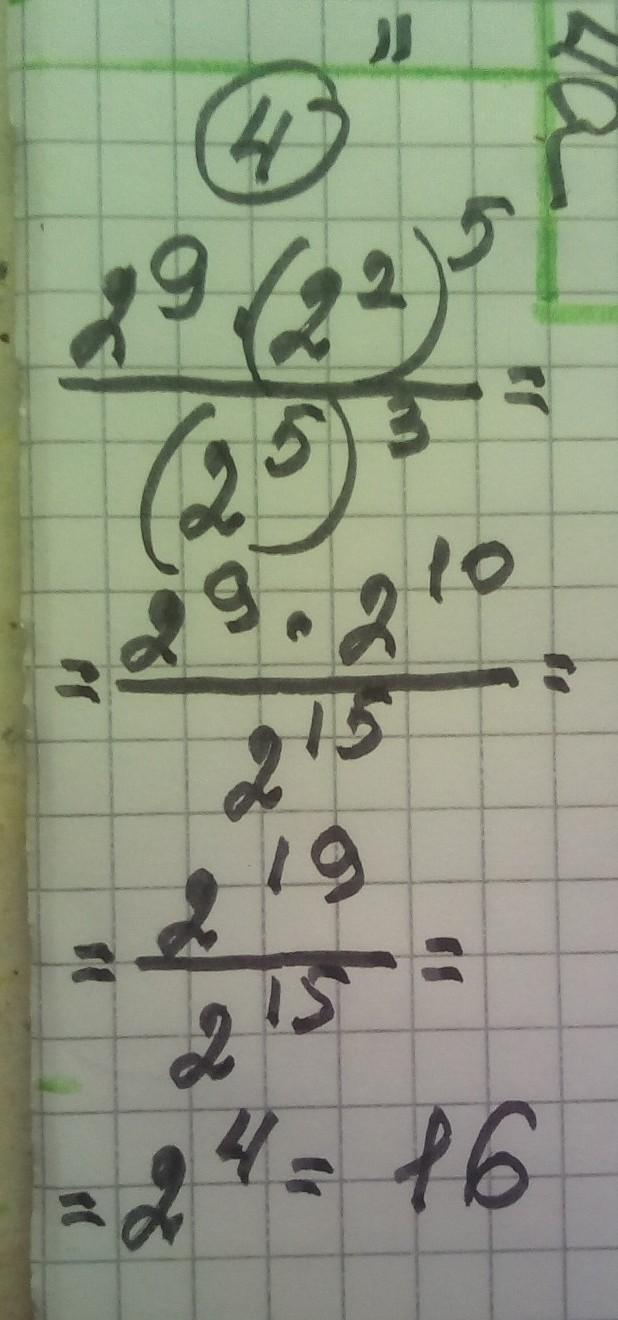 "
④
2⁹ · (2²)⁵
(2⁵)³ =
= 2⁹ · 2¹⁰
2¹⁵ =
= 2¹⁹
2¹⁵ =
= 2⁴ = 16